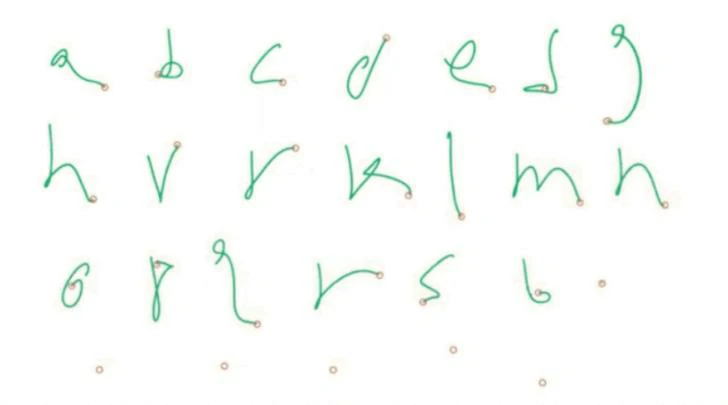 a b c d e f g
h v r k l m n
o p q r s b